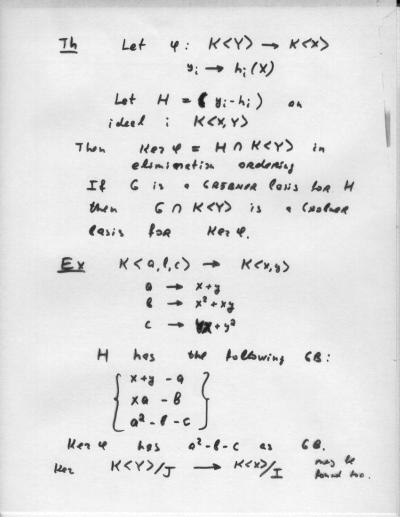 Th Let φ : K<Y> → K<X>
yi → hi(X)
Let H = (yi-hi) an
ideal i K<X,Y>
Then Ker φ = H ∩ K<Y> in
elimination ordering
If G is a GRÖBNER basis for H
then G ∩ K<Y> is a Gröbner
basis for Ker φ.
Ex K<a,b,c> → K<x,y>
a → x+y
b → x²+xy
c → yx+y²
H has the following GB:
x+y - a
xa - b
a² - b - c
Ker φ has a²-b-c as GB.
Ker K<Y>/J → K<X>/I may be
found too.